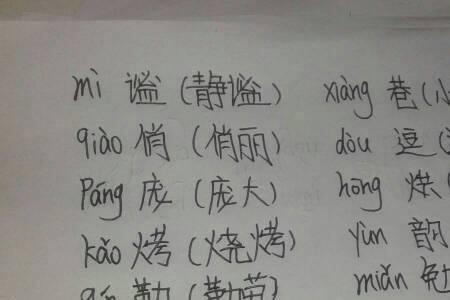 mì 谧 (静谧) xiàng 巷 (小
qiào 俏 (俏丽) dòu 逗 (
páng 庞 (庞大) hōng 烘
kǎo 烤 (烧烤) yùn 韵
qín 勤 (勤苗) miǎn 勉